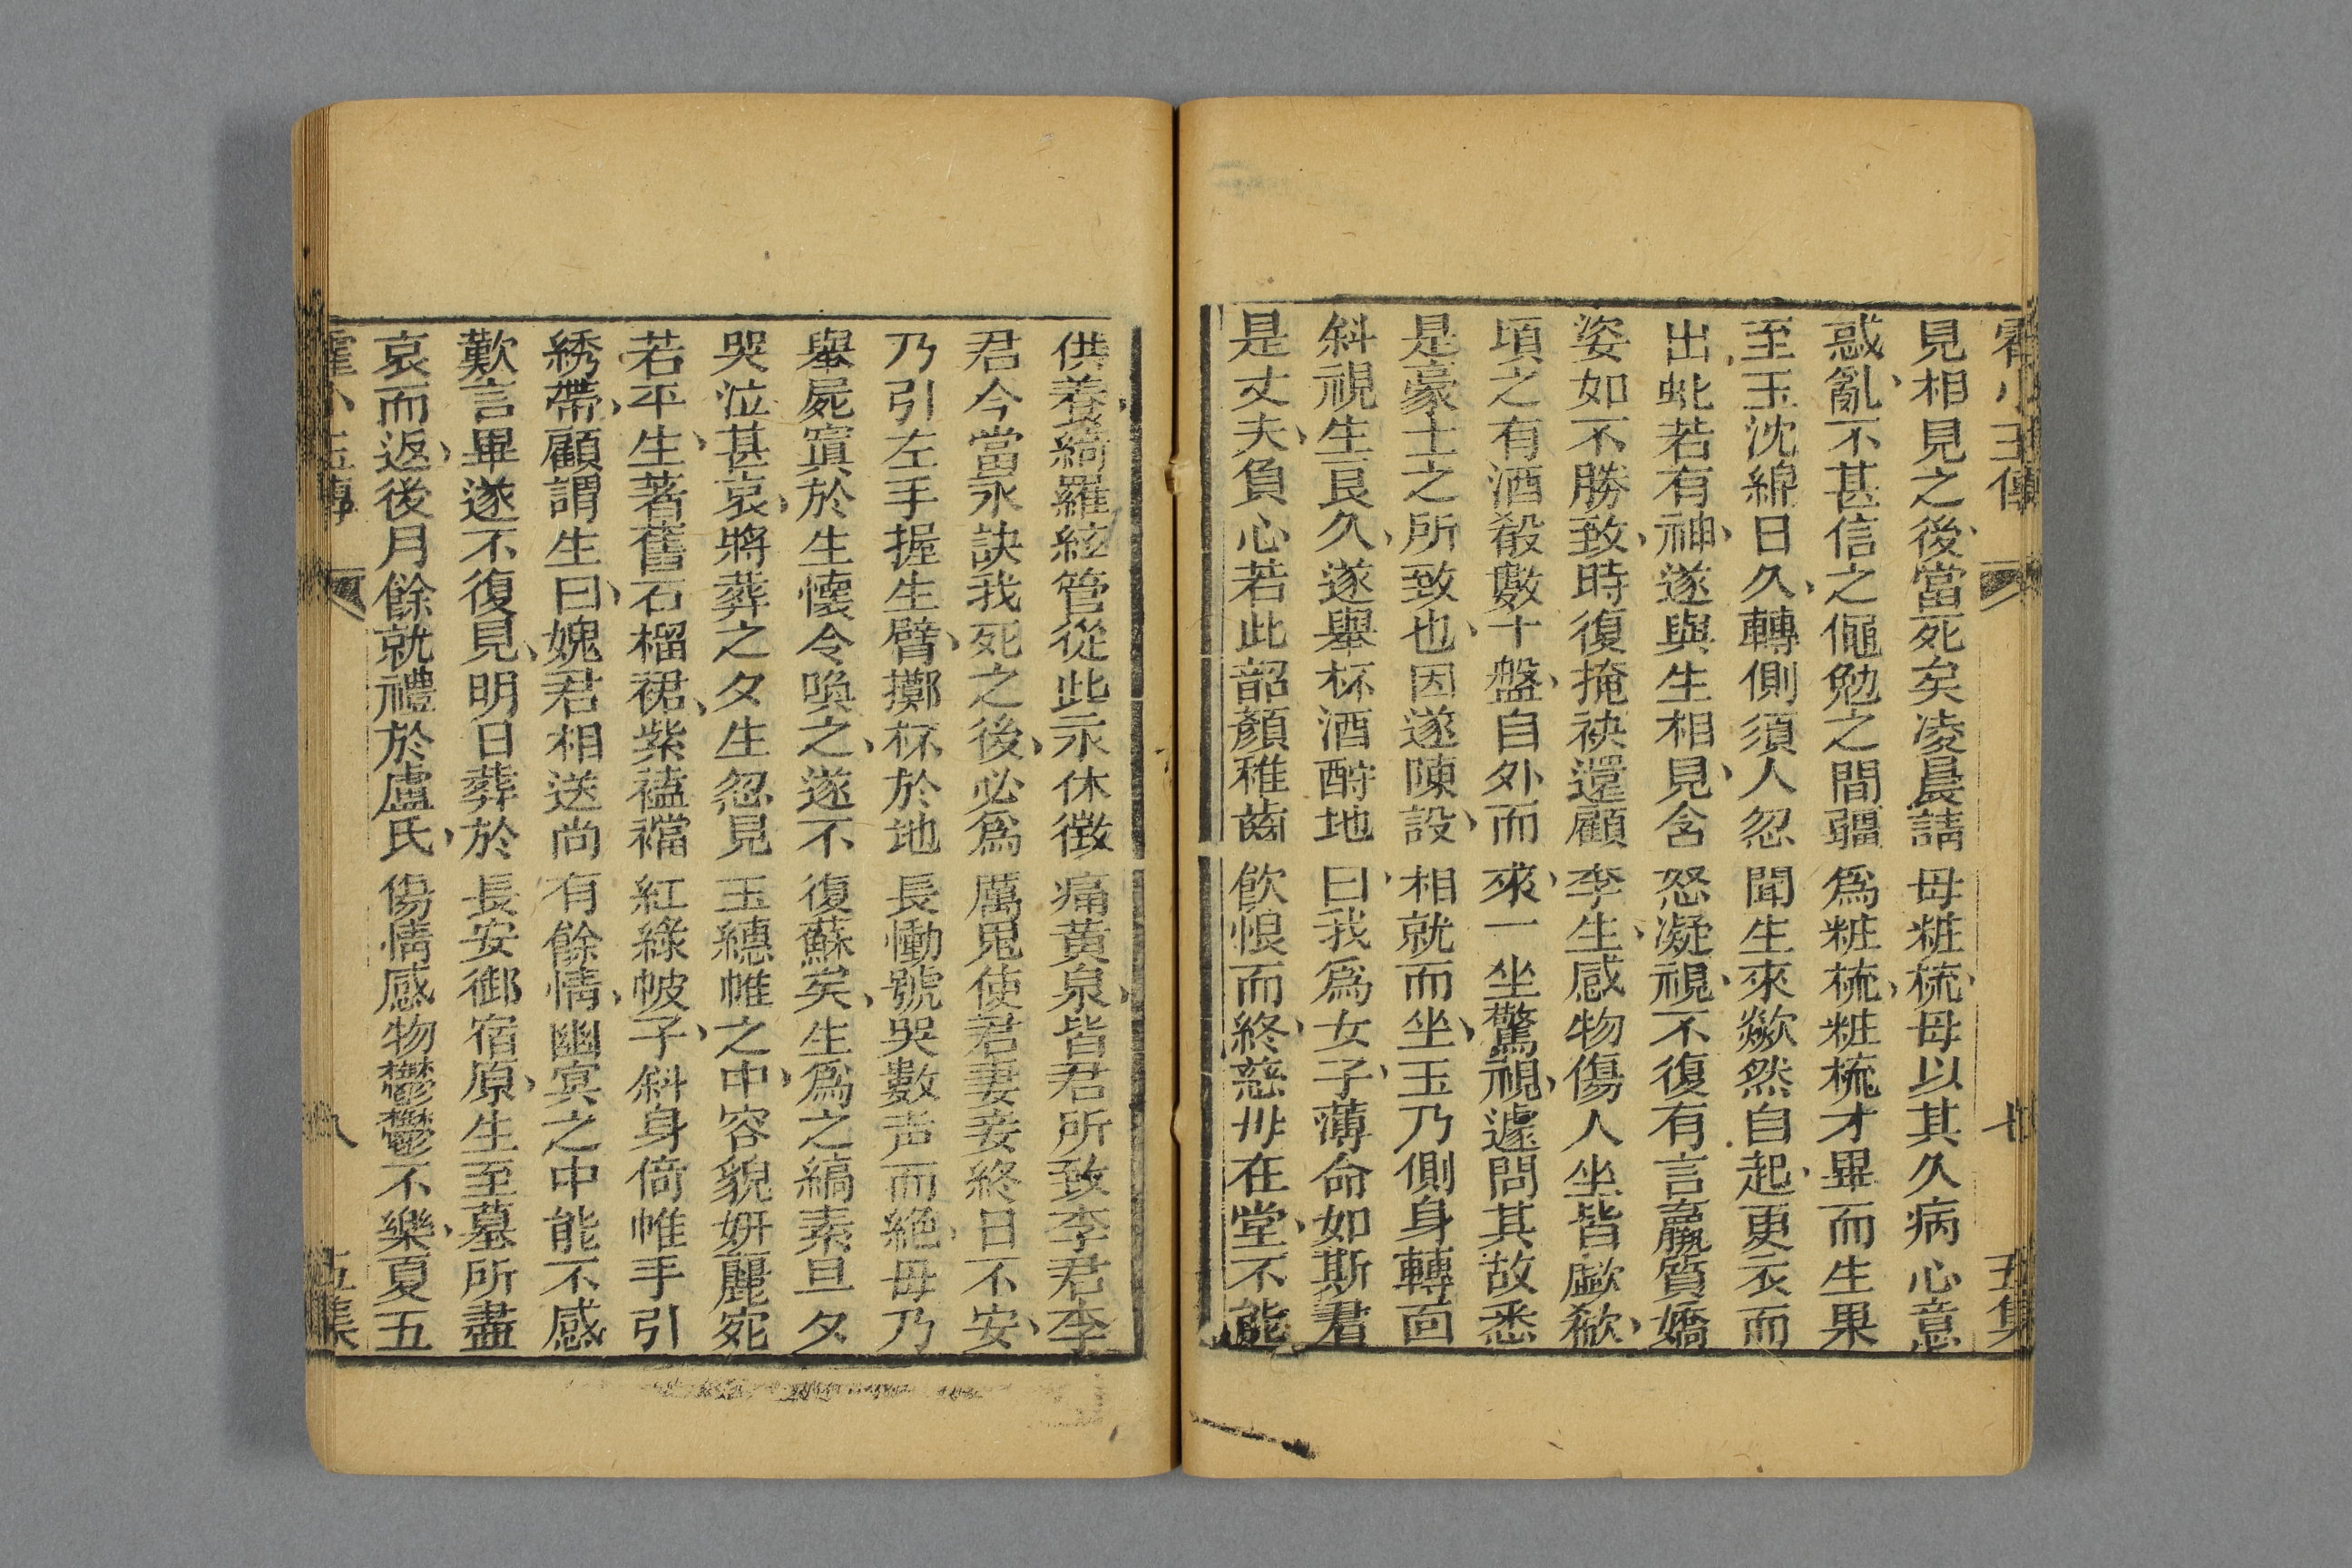 霍小玉傳 七 五集
見相見之後、當死矣凌晨請母粧梳、母以其久病心意
惑亂、不甚信之僶勉之間彊爲粧梳、粧梳才畢而生果
至玉沈綿日久、轉側須人忽聞生來歘然自起、更衣而
出、虵若有神、遂與生相見、含怒凝視、不復有言羸質嬌
姿如不勝致、時復掩袂還顧李生、感物傷人坐皆歔欷、
頃之有酒殽數十盤、自外而來、一坐驚視、遽問其故悉
是豪士之所致也、因遂陳設、相就而坐、玉乃側身轉面
斜視生良久、遂舉杯酒酹地曰、我爲女子、薄命如斯君
是丈夫、負心若此韶顏稚齒飲恨而終、慈毋在堂、不能
供養、綺羅絃管從此永休徵痛黃泉、皆君所致李君李
君今當永訣我死之後、必爲厲鬼使君妻妾終日不安、
乃引左手握生臂、擲杯於地長慟號哭數声而絕、毋乃
舉屍寘於生懷令喚之、遂不復蘇矣、生爲之縞素旦夕
哭泣甚哀、將葬之夕生忽見玉繐帷之中、容貌妍麗宛
若平生、著舊石榴裙、紫䙅襠紅綠帔子、斜身倚帷手引
綉帶、顧謂生曰、媿君相送尚有餘情、幽冥之中能不感
歎言畢遂不復見、明日葬於長安御宿原、生至墓所盡
哀而返、後月餘就禮於盧氏、傷情感物鬱鬱不樂、夏五
霍小玉傳 八 五集